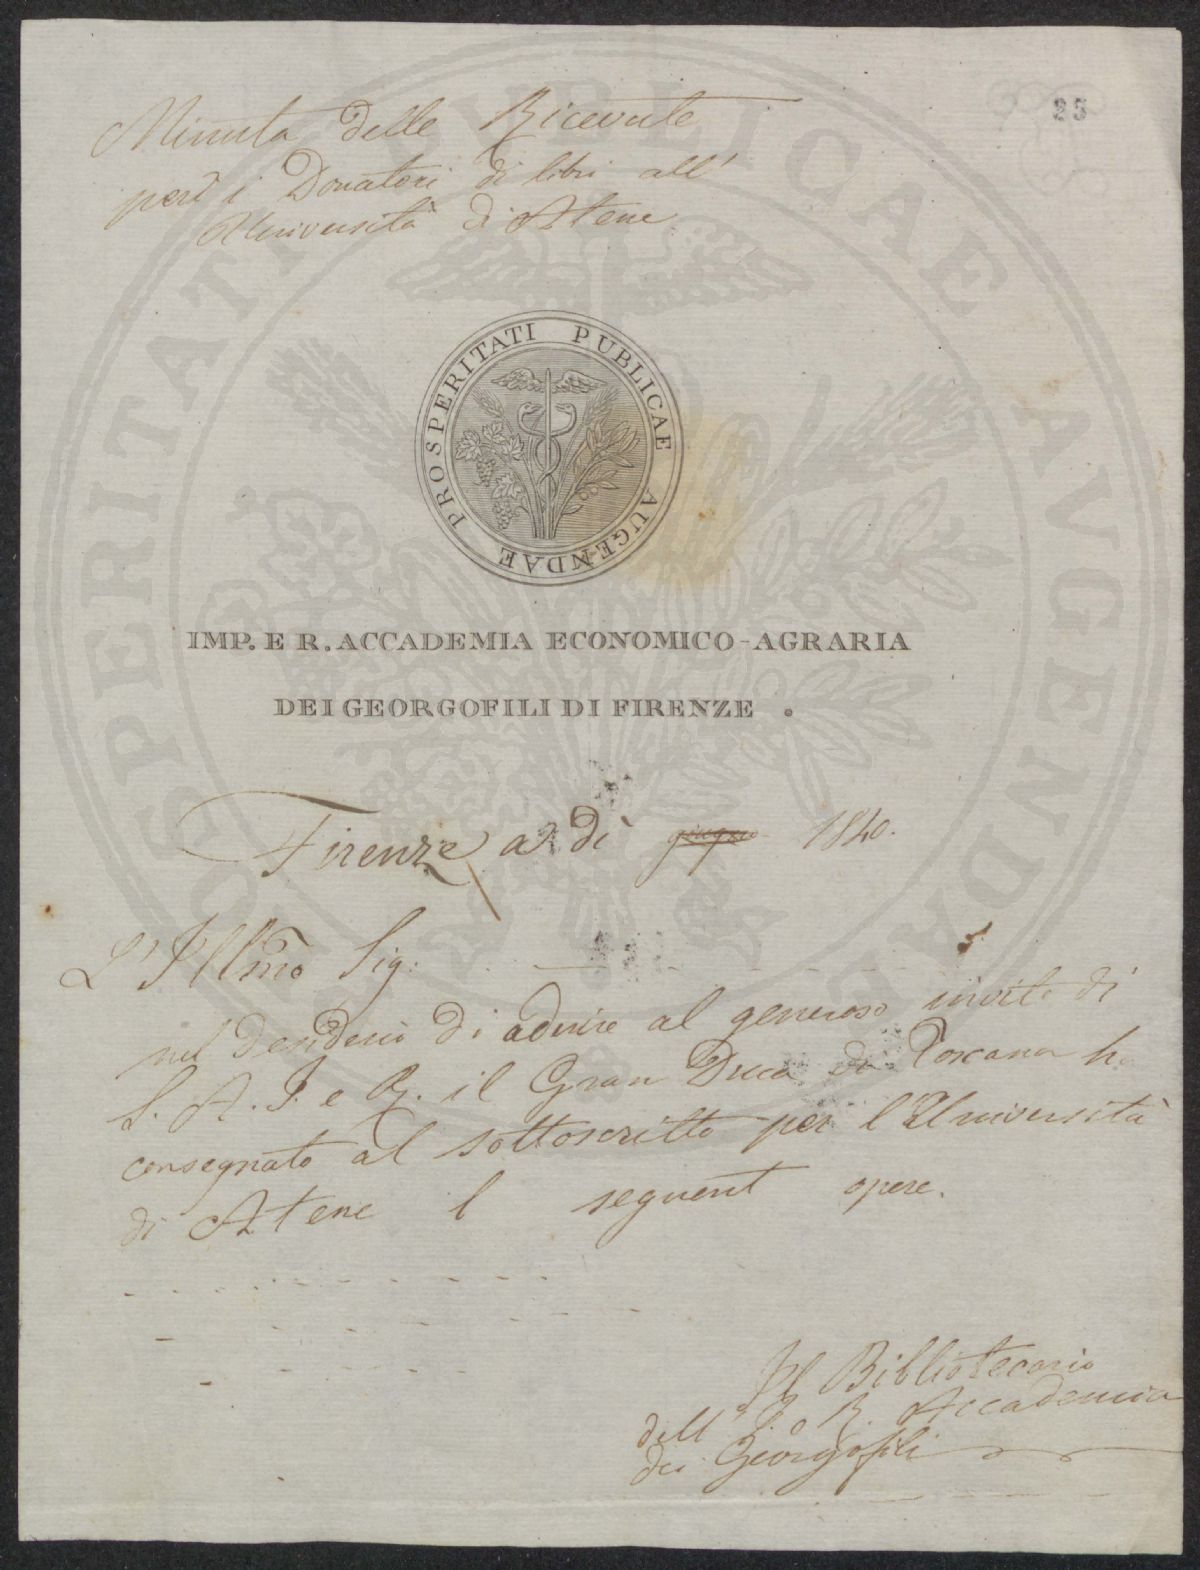 Minuta delle Ricevute
per i Donatori di libri all'
Università di Atene
25
PROSPERITATI PUBLICAE AUGENDAE
IMP. E R. ACCADEMIA ECONOMICO-AGRARIA
DEI GEORGOFILI DI FIRENZE.
Firenze a dì giugno 1840.
L'Illmo Sig.
nel desiderio di aderire al generoso invito di
S. A. I. e R. il Gran Duca di Toscana ha
consegnato al sottoscritto per l'Università
di Atene l seguent opere.
Il Bibliotecario
dell' I. e R. Accademia
dei Georgofili
PROSPERITATI PUBLICAE AVGENDAE